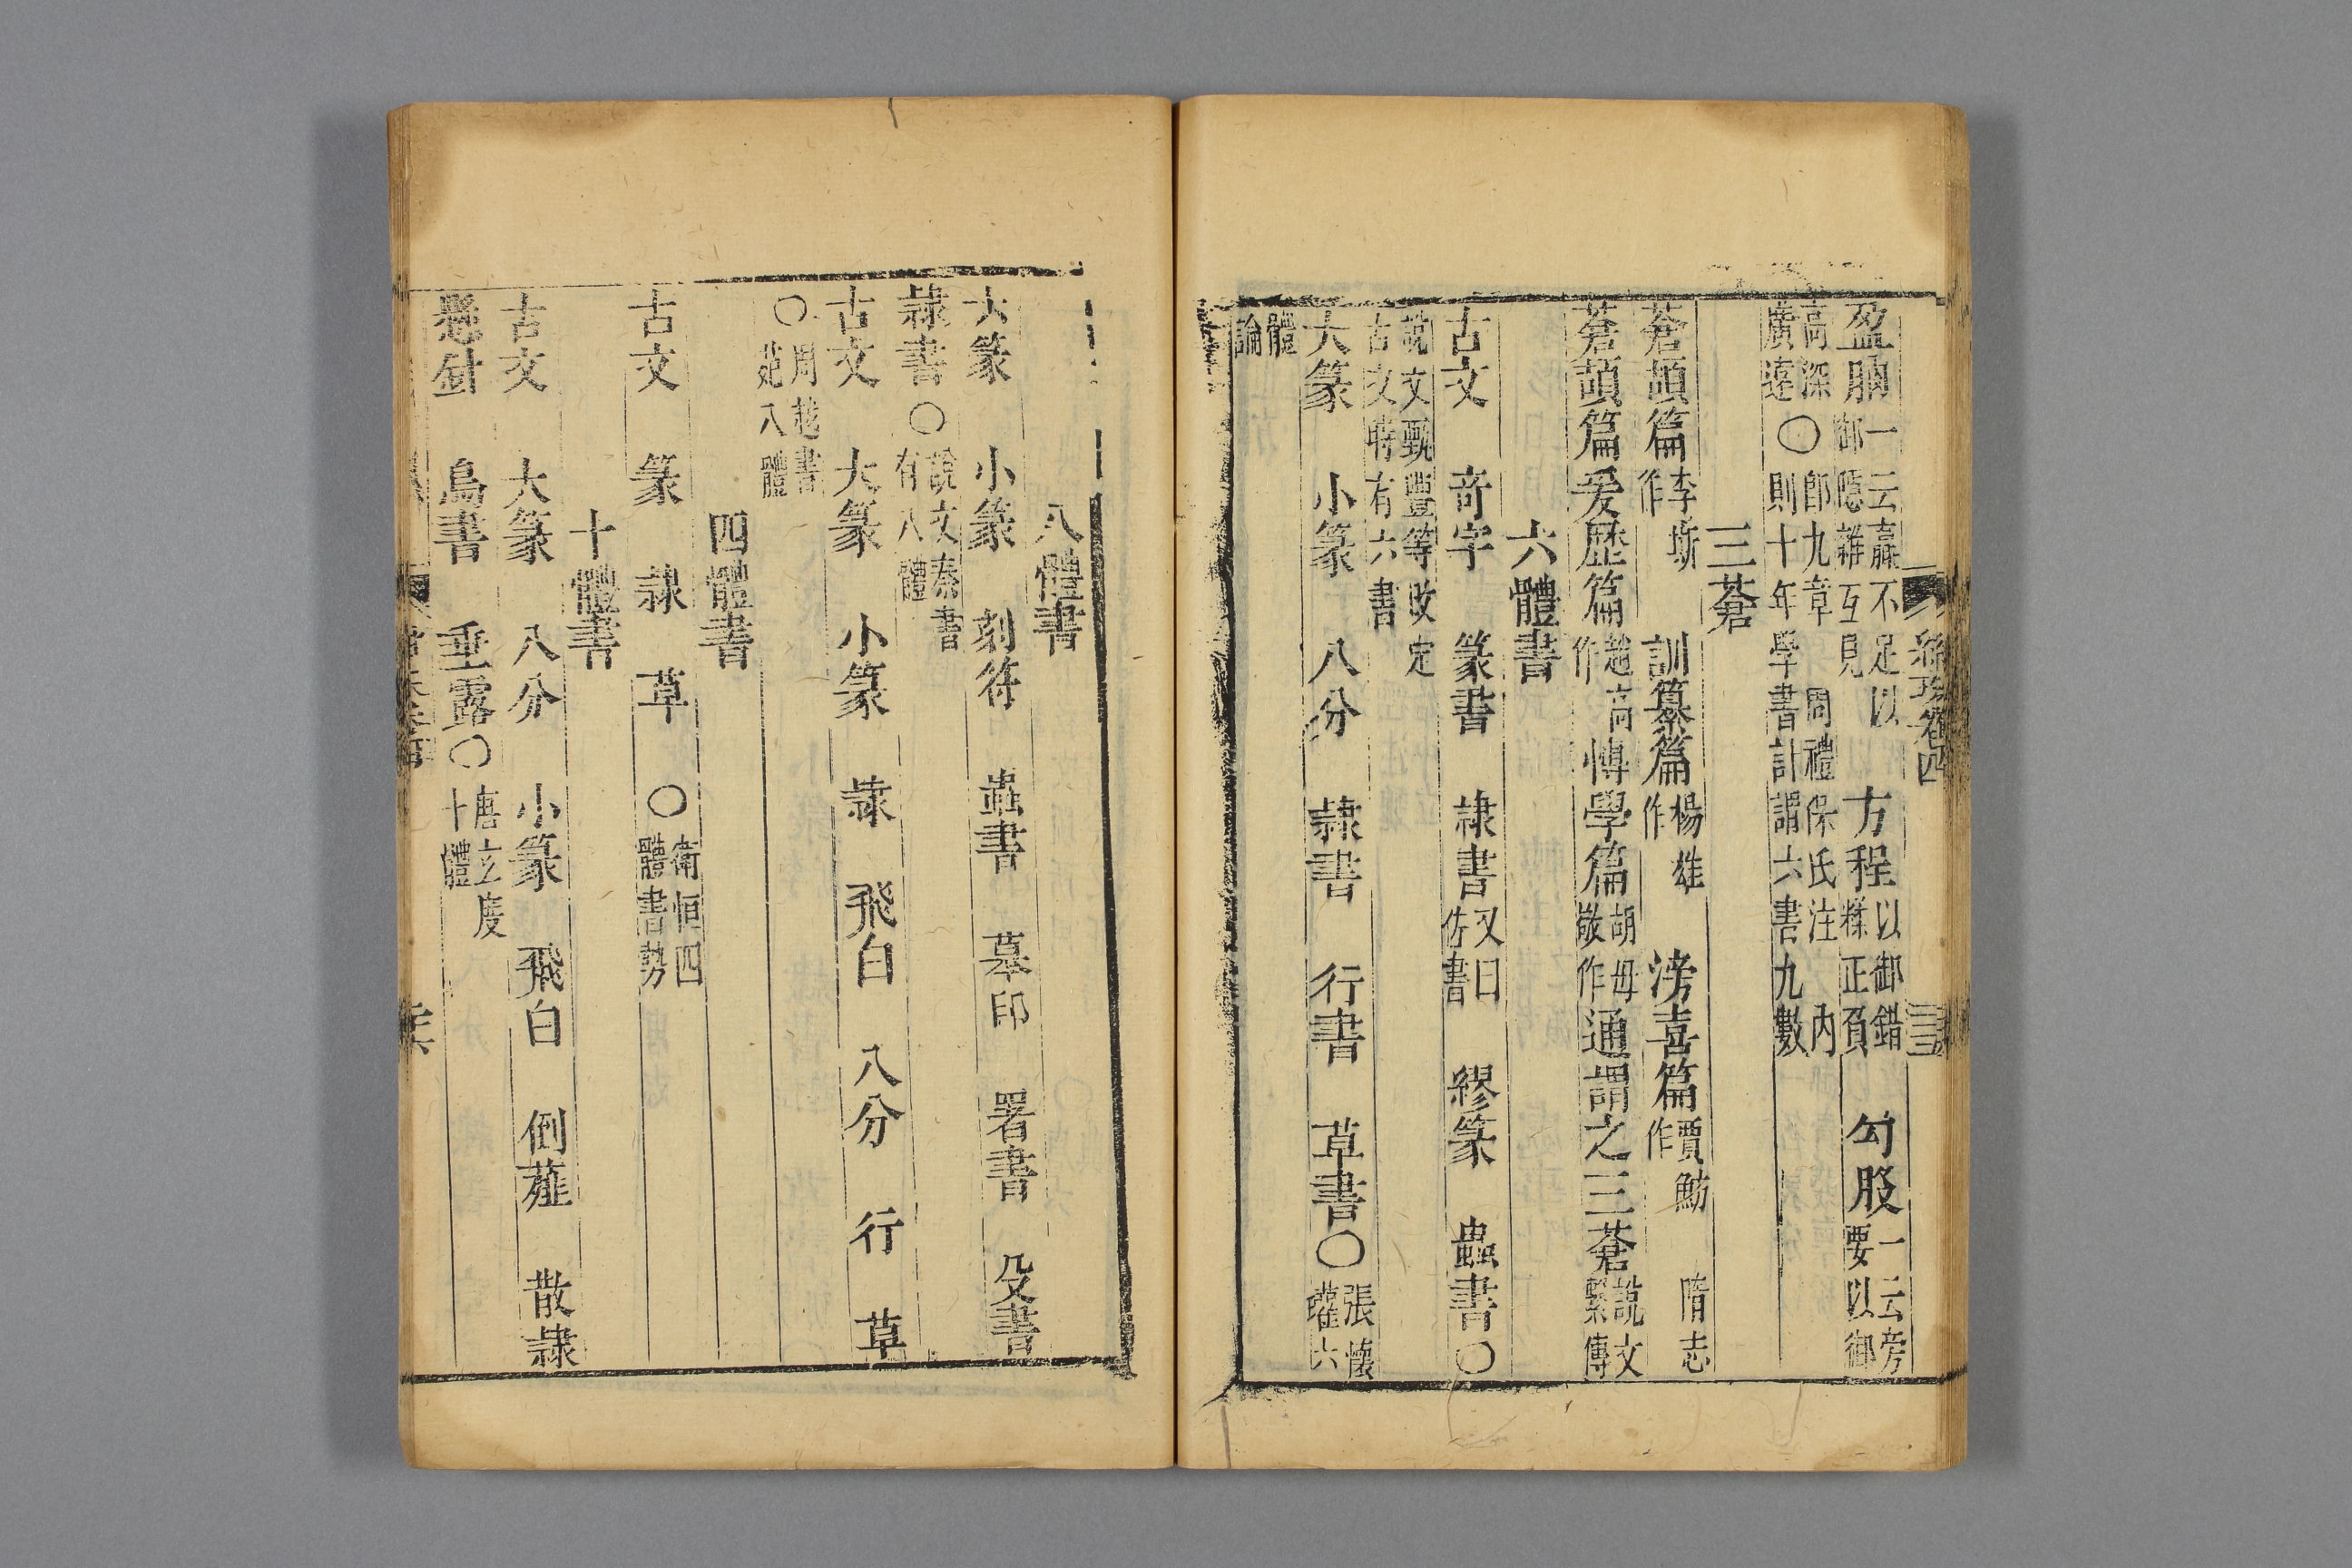 盈朒一云贏不足以御隱雜互見　方程以御錯糅正負　勾股一云旁要以御
高深廣遠〇卽九章　周禮保氏注　內則十年學書計謂六書九數
三蒼
蒼頡篇李斯作　訓纂篇楊雄作　滂喜篇賈魴作　隋志
蒼頡篇爰歷篇趙高作博學篇胡毋敬作通謂之三蒼說文繫傳
六體書
古文　奇字　篆書　隸書又曰佐書　繆篆　蟲書〇
說文甄豐等改定古文時有六書
大篆　小篆　八分　隸書　行書　草書〇張懷瓘六
體論
八體書
大篆　小篆　刻符　蟲書　摹印　署書　殳書
隸書〇說文秦書有八體
古文　大篆　小篆　隸　飛白　八分　行　草
〇周越書苑八體
四體書
古文　篆　隸　草　〇衛恒四體書勢
十體書
古文　大篆　八分　小篆　飛白　倒薤　散隸
懸針　鳥書　垂露〇唐玄度十體